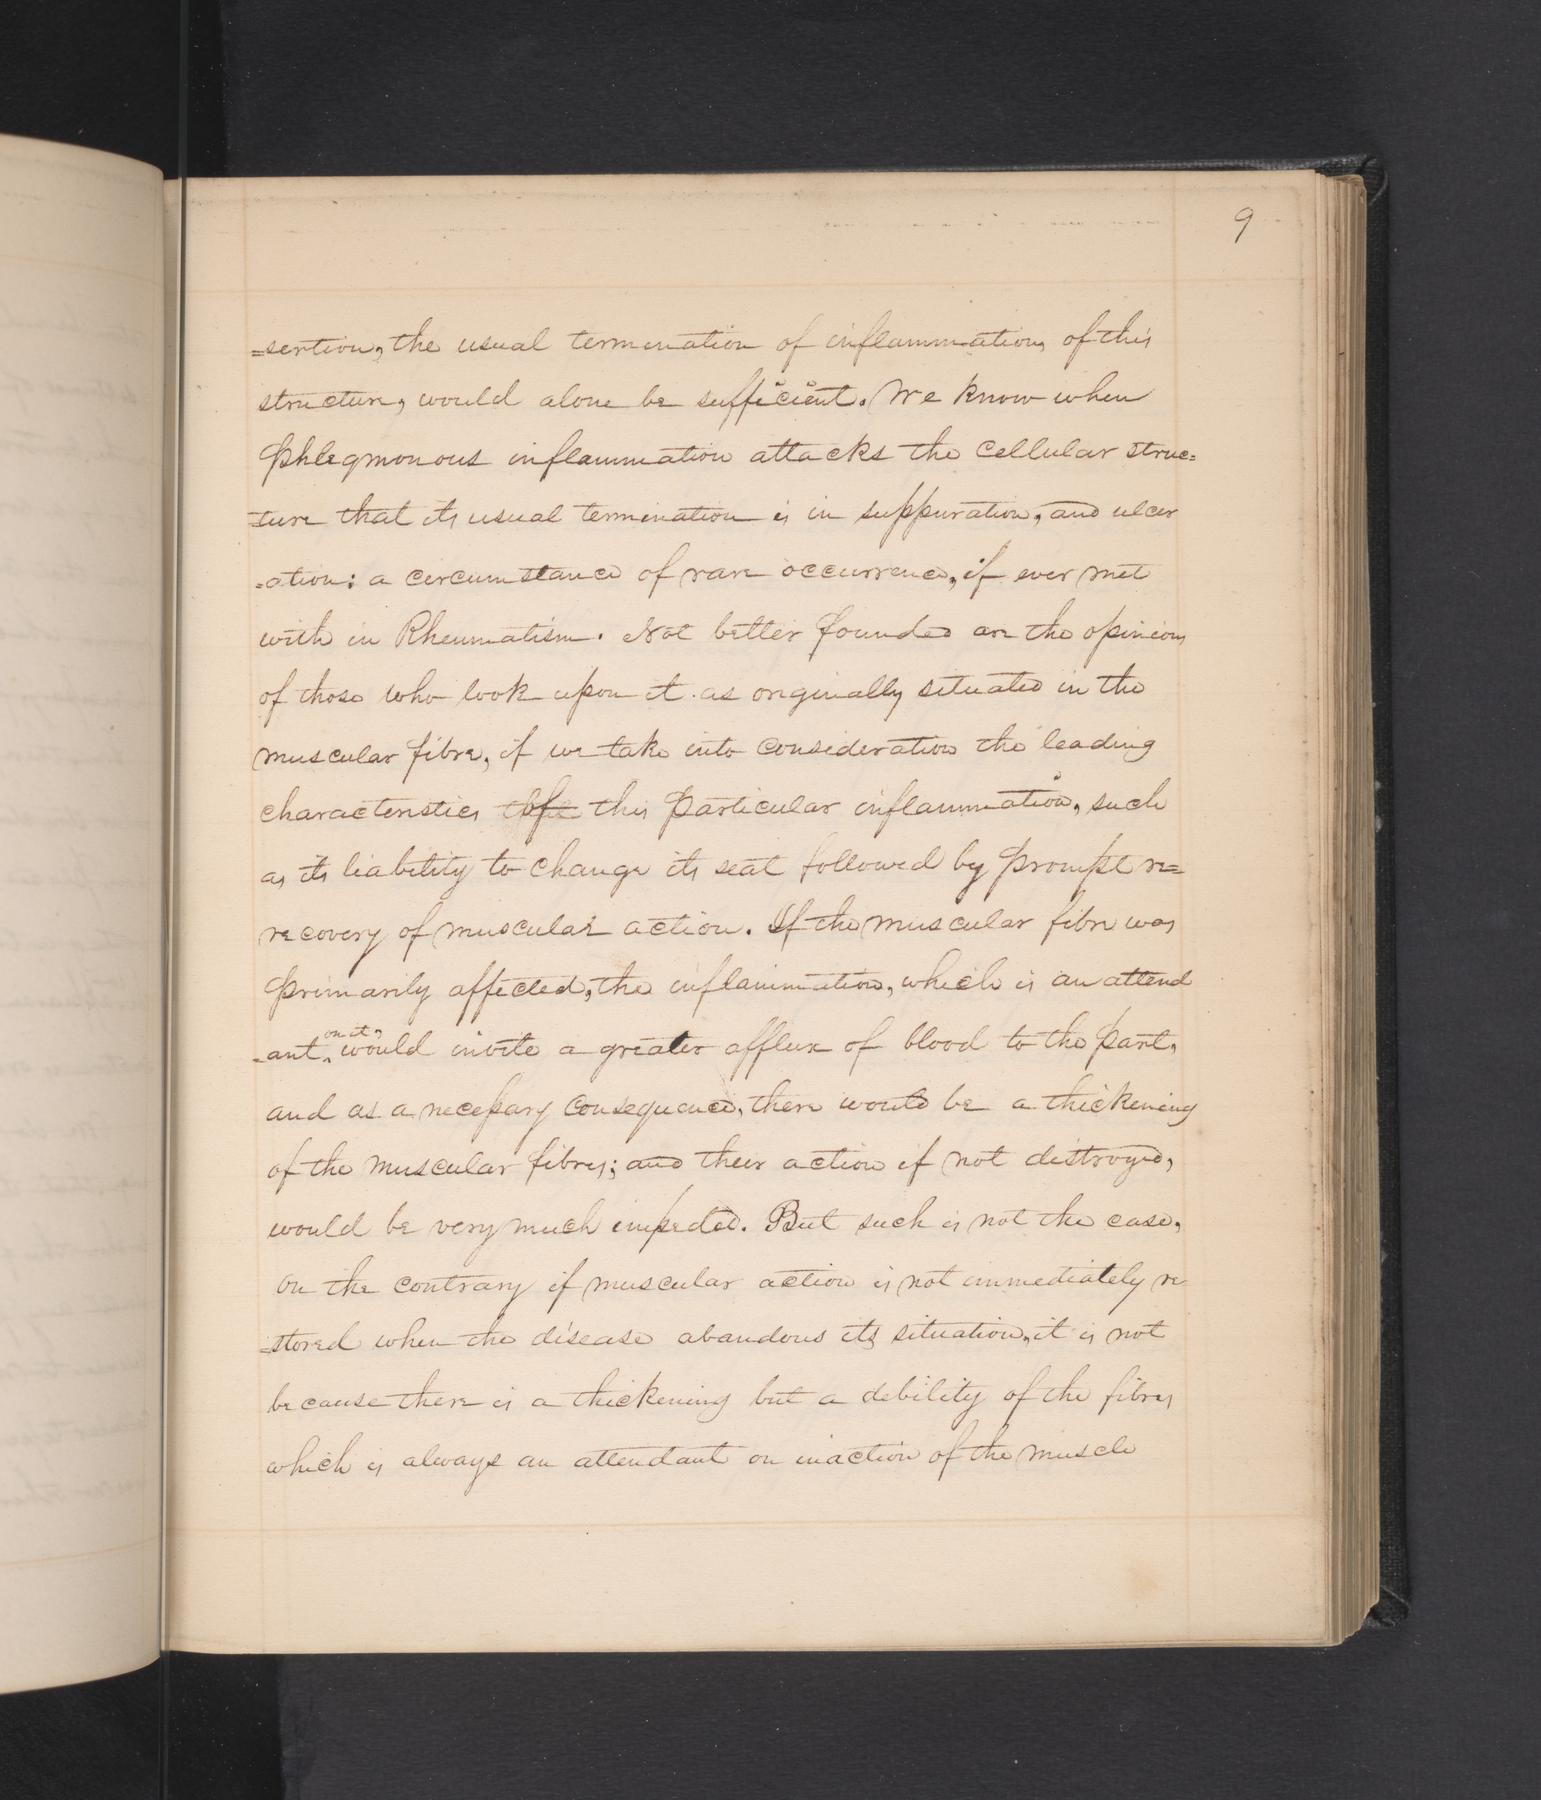 9
=sertion, the usual termination of inflammation, of this
structure, would alone be sufficient. We know when
Phlegmonous inflammation attacks the Cellular struc=
ture that its usual termination is in suppuration, and ulcer
=ation: a circumstance of rare occurrence, if ever met
with in Rheumatism. Not better founded are the opinions
of those who look upon it as originally situated in the
muscular fibre, if we take into Consideration the leading
characteristics of this Particular inflammation, such
as its liability to change its seat followed by prompt re=
recovery of muscular action. If the muscular fibre was
Primarily affected, the inflammation, which is an attend
-ant on it, would invite a greater afflux of blood to the Part,
and as a necessary Consequence, there would be a thickening
of the muscular fibres; and their action if not distroyed,
would be very much impeded. But such is not the case,
on the contrary if muscular action is not immediately re
=stored when the disease abandons its situation, it is not
because there is a thickening but a debility of the fibres
which is always an attendant on inaction of the muscle